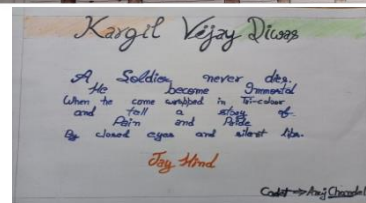 Kargil Vijay Diwas
A Soldier never dies.
He become Immortal
When he come wrapped in Tri-colour
and tell a story of
Pain and Pride
By closed eyes and silent lips.
Jay Hind
Cadet